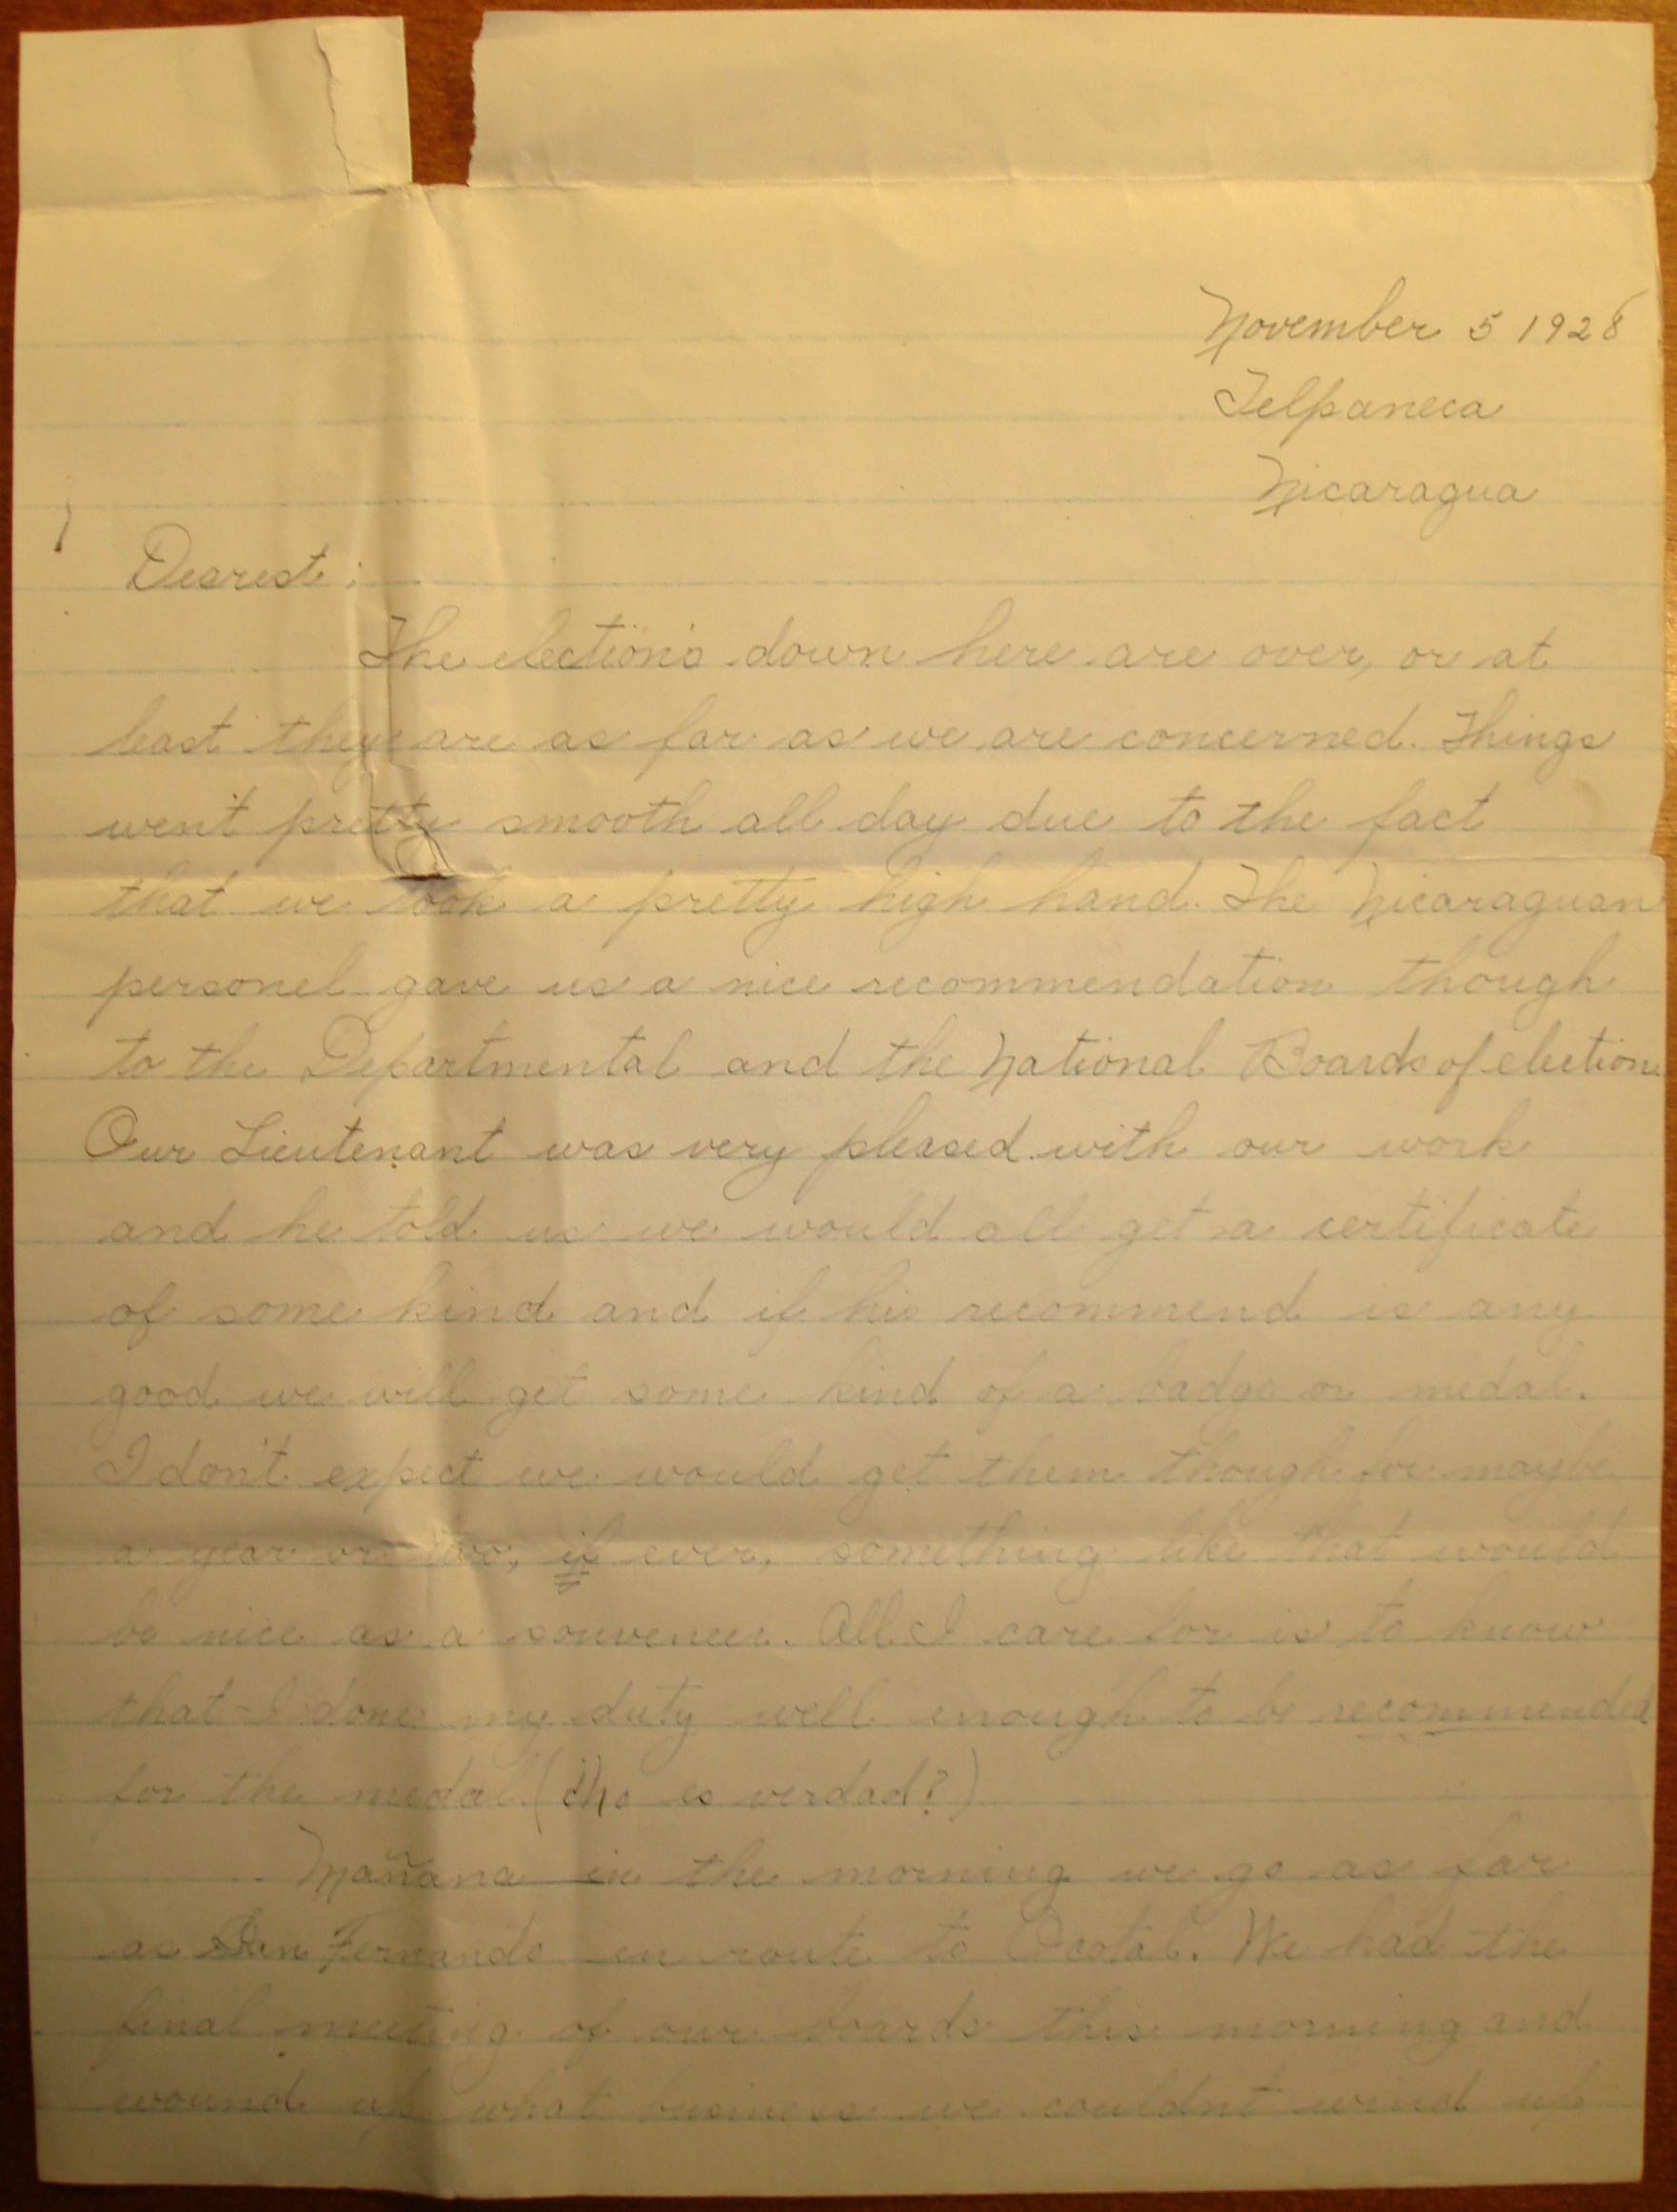 November 5 1928
Telpaneca
Nicaragua
Dearest:
The elections down here are over, or at
least they are as far as we are concerned. Things
went pretty smooth all day due to the fact
that we took a pretty high hand. The Nicaraguan
personel gave us a nice recommendation though
to the Departmental and the National Boards of election.
Our Lieutenant was very pleased with our work
and he told us we would all get a certificate
of some kind and if his recommend is any
good we will get some kind of a badge or medal.
I don't expect we would get them though for maybe
a year or two, if ever, something like that would
be nice as a souveneer. All I care for is to know
that I done my duty well enough to be recommended
for the medal (¿No es verdad?)
Mañana in the morning we go as far
as San Fernando en route to Ocotal. We had the
final meeting of our boards this morning and
wound up what business we couldnt wind up